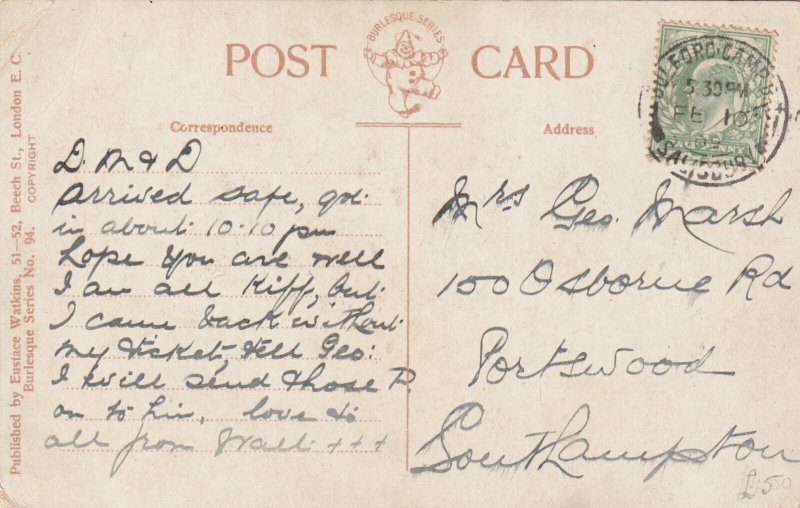 Published by Eustace Watkins, 51—52, Beech St., London E. C.
Burlesque Series No. 94. COPYRIGHT
BURLESQUE SERIES
POST CARD
Correspondence
D. M & D
arrived safe, got
in about 10.10 pm
hope you are well
I am all Kiff, but
I came back without
my ticket, tell Geo:
I will send those P.
on to him, love to
all from Walt + + +
Address
Mrs Geo. Marsh
150 Osborne Rd
Portswood
Southampton
£4.50
BULFORD CAMP
5.30 PM
FE 10
09
SALISBURY